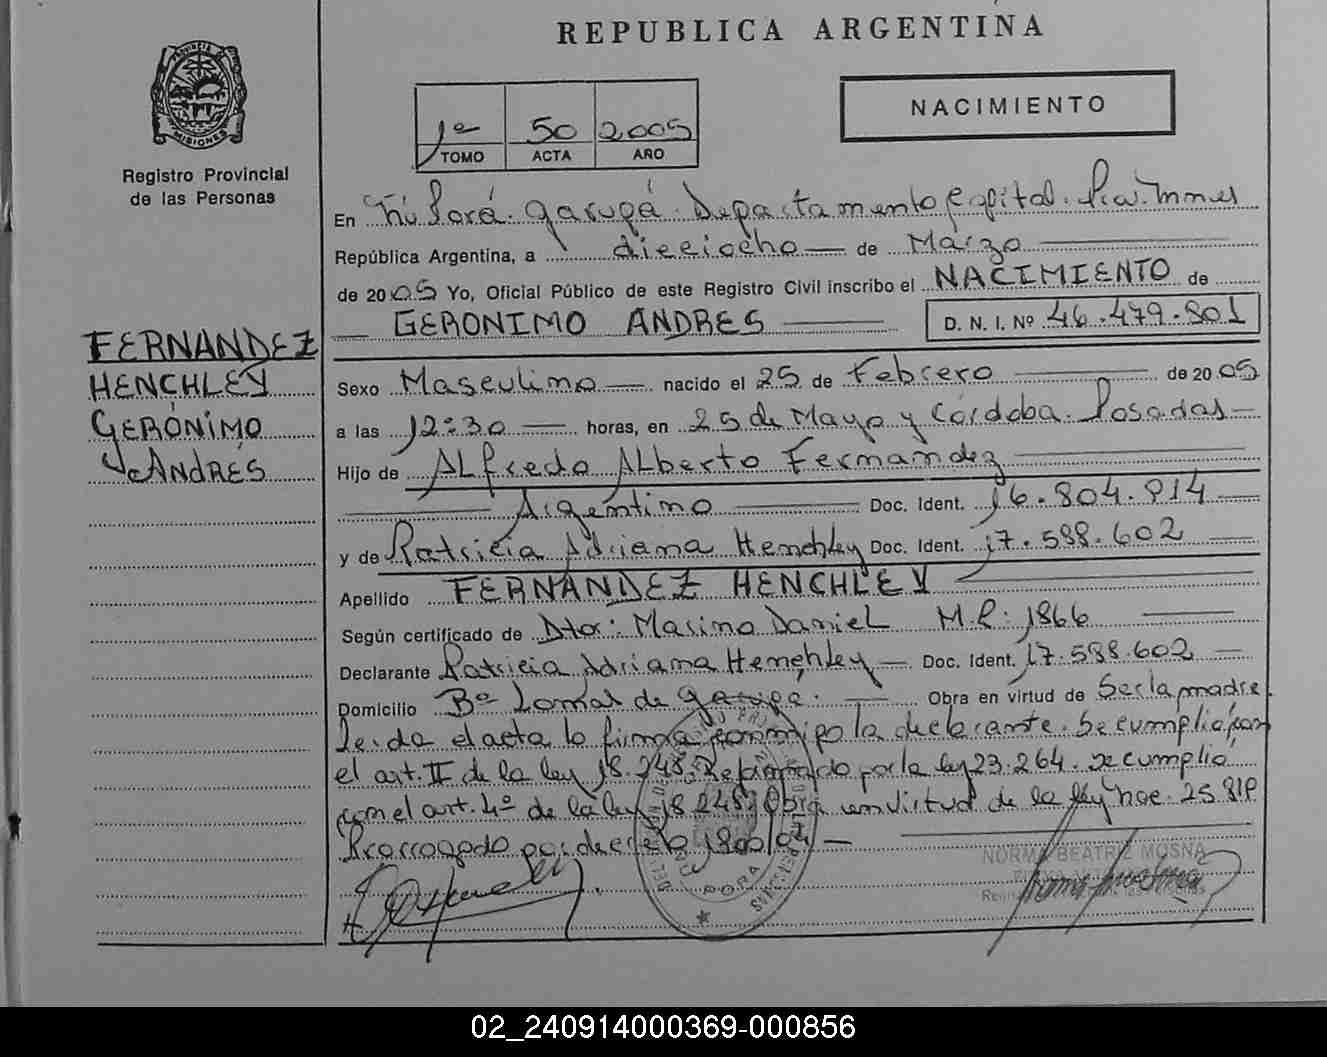 REPUBLICA ARGENTINA
PROVINCIA DE
MISIONES
Registro Provincial
de las Personas
1º 50 2.005
TOMO ACTA AÑO
NACIMIENTO
En Ñu Porá. Garupá. Departamento Capital. Misiones
República Argentina, a dieciocho de Marzo
de 2005 Yo, Oficial Público de este Registro Civil inscribo el NACIMIENTO de
GERONIMO ANDRES D. N. I. Nº 46.479.801
FERNANDEZ
HENCHLEY
GERÓNIMO
ANDRÉS
Sexo Masculino nacido el 25 de Febrero de 2005
a las 12:30 horas, en 25 de Mayo y Córdoba. Posadas
Hijo de Alfredo Alberto Fernandez
Argentino Doc. Ident. 16.804.914
y de Patricia Adriana Henchley Doc. Ident. 17.588.602
Apellido FERNANDEZ HENCHLEY
Según certificado de Dtor: Marino Daniel M.P: 1866
Declarante Patricia Adriana Henchley Doc. Ident. 17.588.602
Domicilio Bº Lomas de Garupá. Obra en virtud de Ser la madre
Leida el acta la firma conmigo la declarante. Se cumplió con
el art. II de la ley 18.248. Reformado por la ley 23.264. Se cumplió
con el art. 4º de la ley 18.248. Obra en virtud de la ley nac. 25.819
Prorrogado por decreto 1800/04
NORMA BEATRIZ MOSNA
02_240914000369-000856